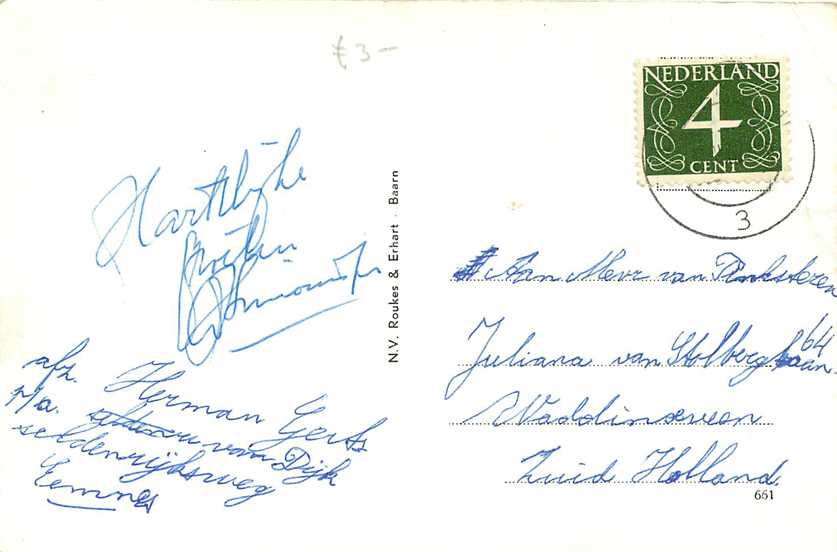 £ 3-
NEDERLAND
4
CENT
3
Hartelijke
groeten
afz. Herman Gerts
p/a. van Dijk
seldenrijksweg
Eemnes
N.V. Roukes & Erhart - Baarn
Aan Mevr van Pinksteren
Juliana van Stolberglaan 64
Waddinxveen
Zuid Holland.
661